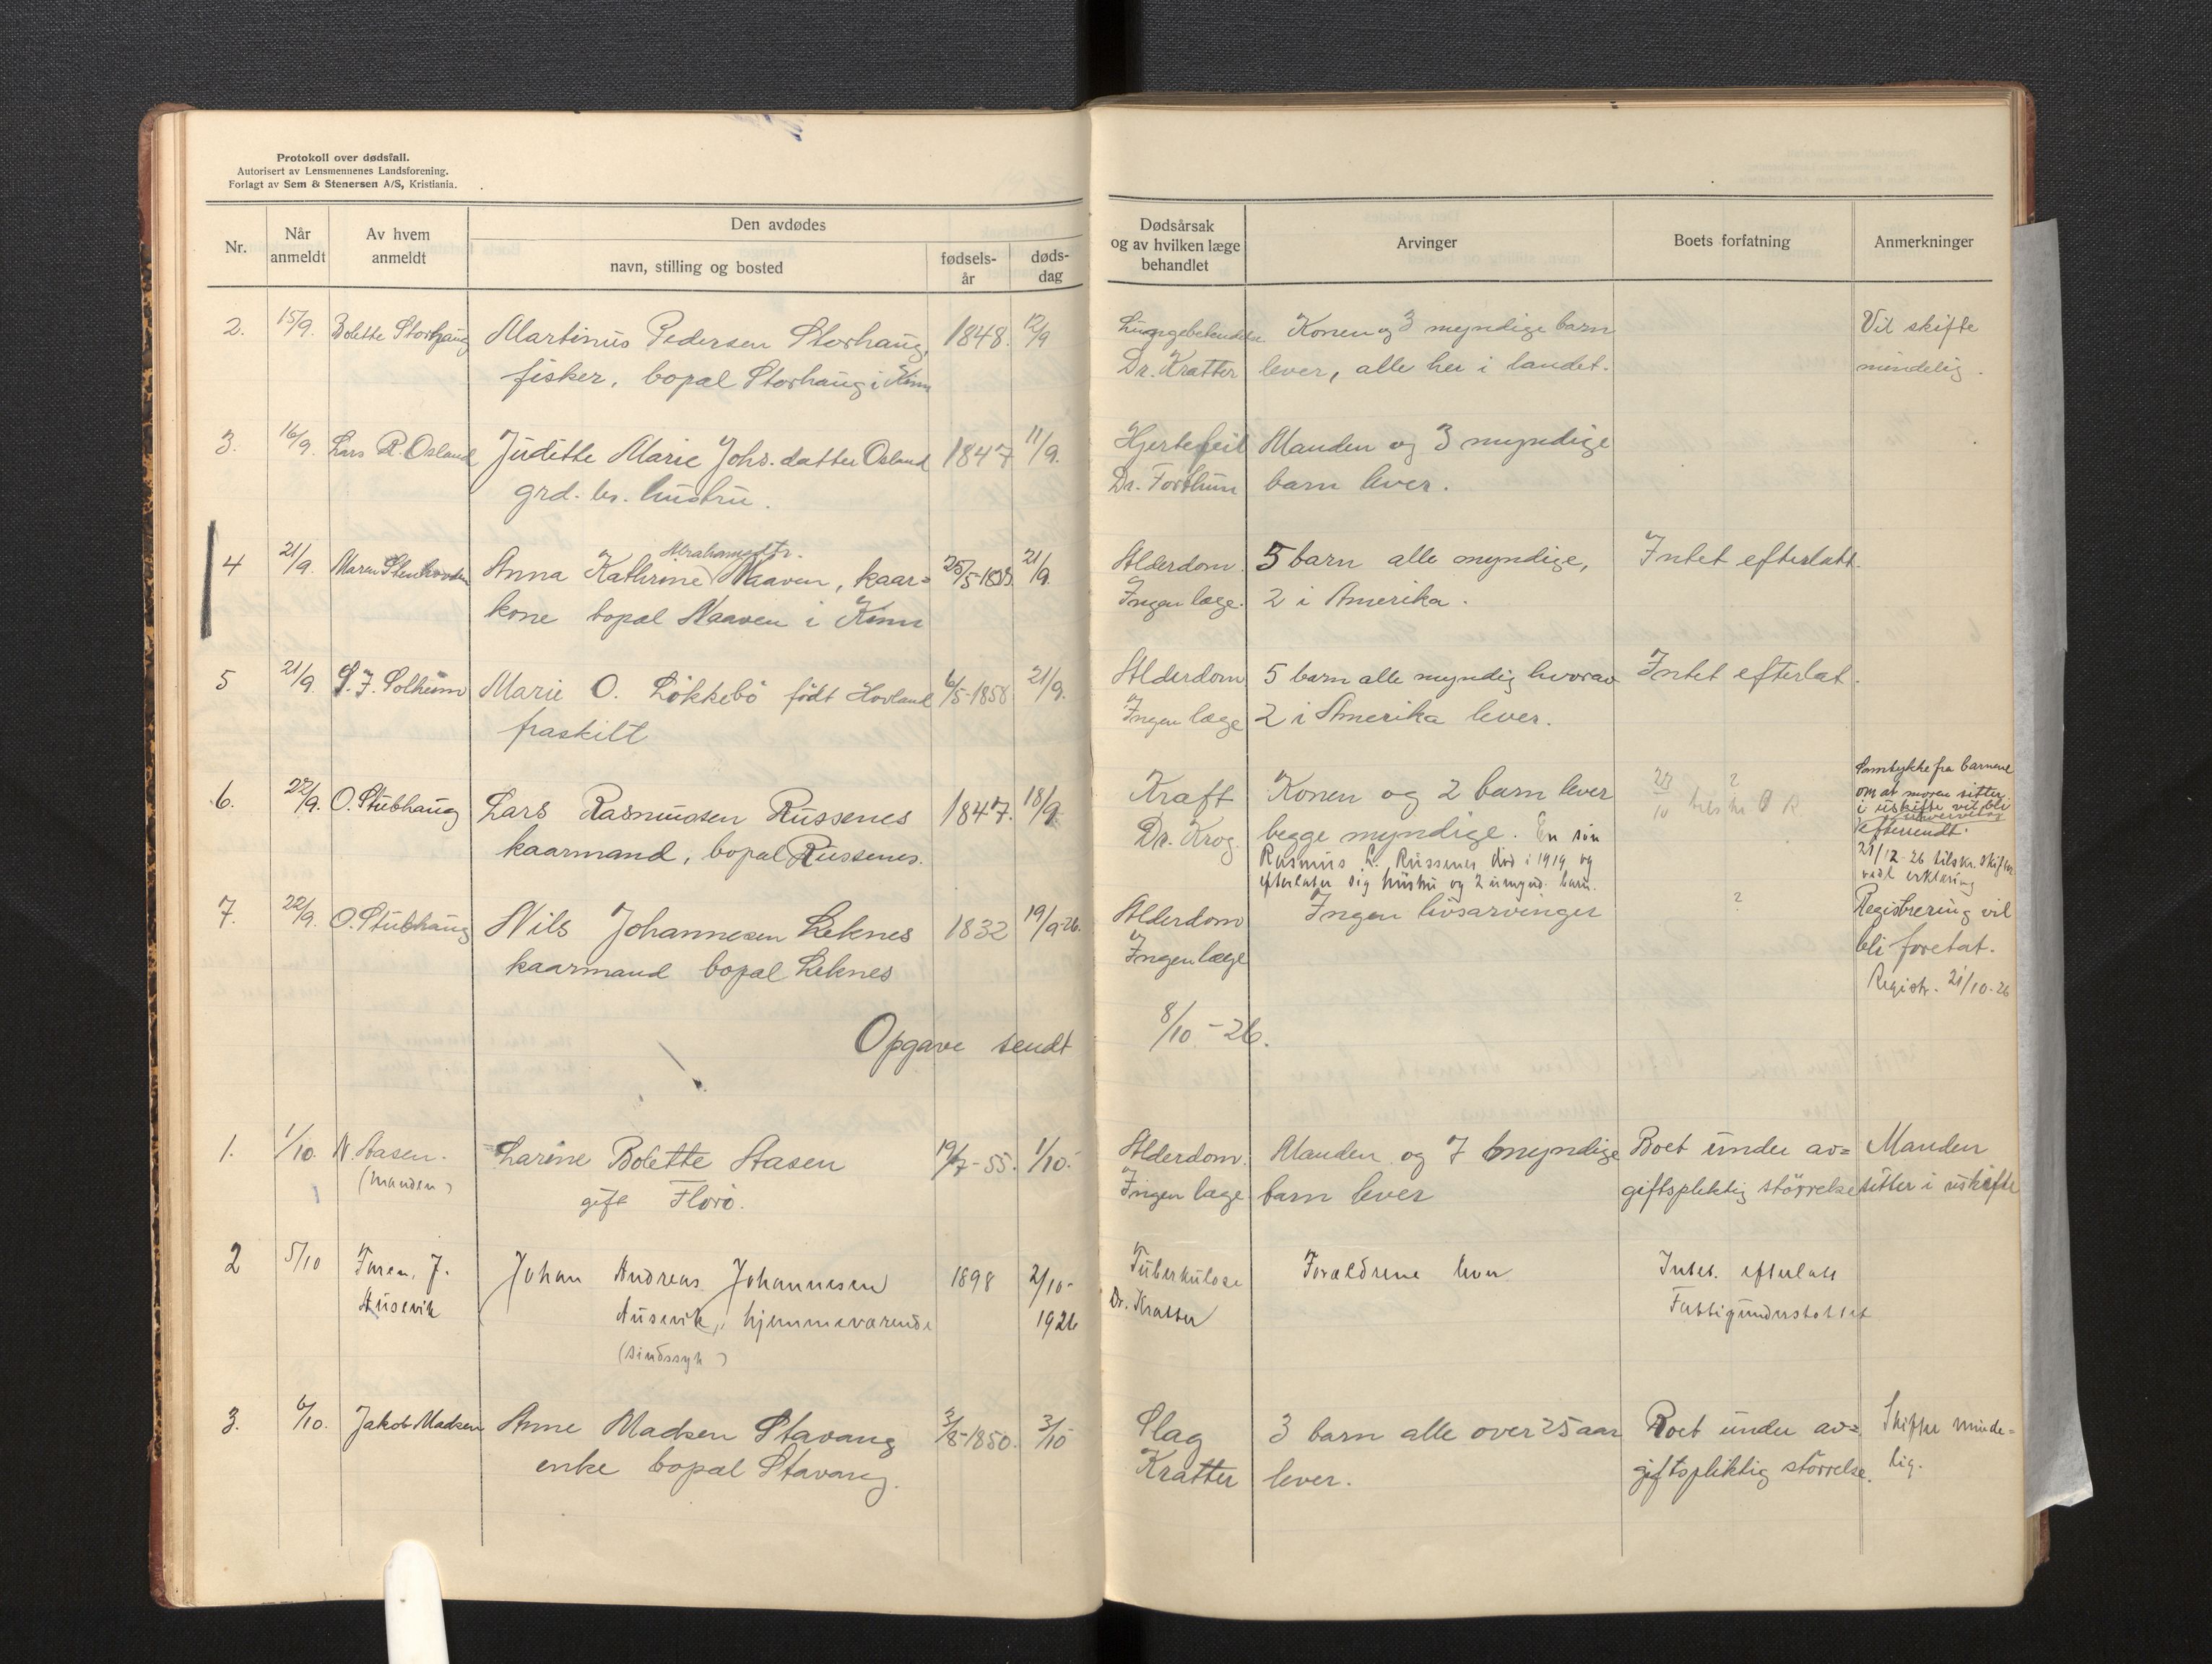 Protokoll over dødsfall.
Autorisert av Lensmennenes Landsforening.
Forlagt av Sem & Stenersen A/S, Kristiania.
Nr.
Når anmeldt
Av hvem anmeldt
Den avdødes
navn, stilling og bosted
fødsels-år
døds-dag
Dødsårsak og av hvilken læge behandlet
Arvinger
Boets forfatning
Anmerkninger
2. 15/9. Bolette Storhaug Martinus Pedersen Storhaug, 1848. 12/9 Konen og 3 myndige barn Vil skifte
fisker, bopæl Storhaug i Kinn Dr. Kratter lever, alle her i landet. mindelig.
3. 16/9. Lars R. Osland Juditte Marie Johs. datter Osland 1847 11/9. Hjertefeil Manden og 3 myndige
grd. br. hustru. Dr. Forthun barn lever.
Abrahamsdtr.
4 21/9. Maren Anna Kathrine Naaven, kaar= 25/5-1833 21/9. Alderdom. 5 barn alle myndige, Intet efterlatt.
kone bopæl Naaven i Kinn Ingen læge. 2 i Amerika.
5 21/9. S. J. Solheim Marie O. Løkkebø født Hovland 6/5-1858 21/9. Alderdom 5 barn alle myndig hvorav Intet efterlat.
fraskilt Ingen læge 2 i Amerika lever.
6. 22/9. O. Stubhaug Lars Rasmussen Russenes 1847. 18/9. Kraft Konen og 2 barn lever ?
kaarmand, bopæl Russenes. Dr. Krog. begge myndige. En søn
Rasmus L. Russenes død i 1919 og
efterlater sig hustru og 2 umynd. barn.
Samtykke fra barnene
om at moren sitter
i uskifte vil bli
eftersendt.
21/12-26 tilskr. skifter.
vedl erklæring
7. 22/9. O. Stubhaug Nils Johannesen Leknes 1832 19/9-26. Alderdom Ingen livsarvinger ? Registrering vil
kaarmand bopæl Leknes Ingen læge bli foretat.
Registr. 21/10-26
Opgave sendt 8/10-26.
1. 1/10. N. Aasen. Larine Bolette Aasen 19/7-55. 1/10. Alderdom. Manden og 7 myndige Boet under av= Manden
(manden) gift Florø. Ingen læge barn lever giftspliktig størrelse sitter i uskifte
2 5/10 Faren, J. Johan Andreas Johannesen 1898 2/10- Tuberkulose Forældrene lever Intet efterlatt
Ausevik Ausevik, hjemmeværende 1926 Dr. Kratter Fattigunderstøttet
(sindssyk)
3. 6/10. Jakob Madsen Anne Madsen Stavang 3/8-1850. 3/10 Slag 3 barn alle over 25 aar Boet under av= Skifter minde=
enke bopæl Stavang. Kratter lever. giftspliktig størrelse. lig.